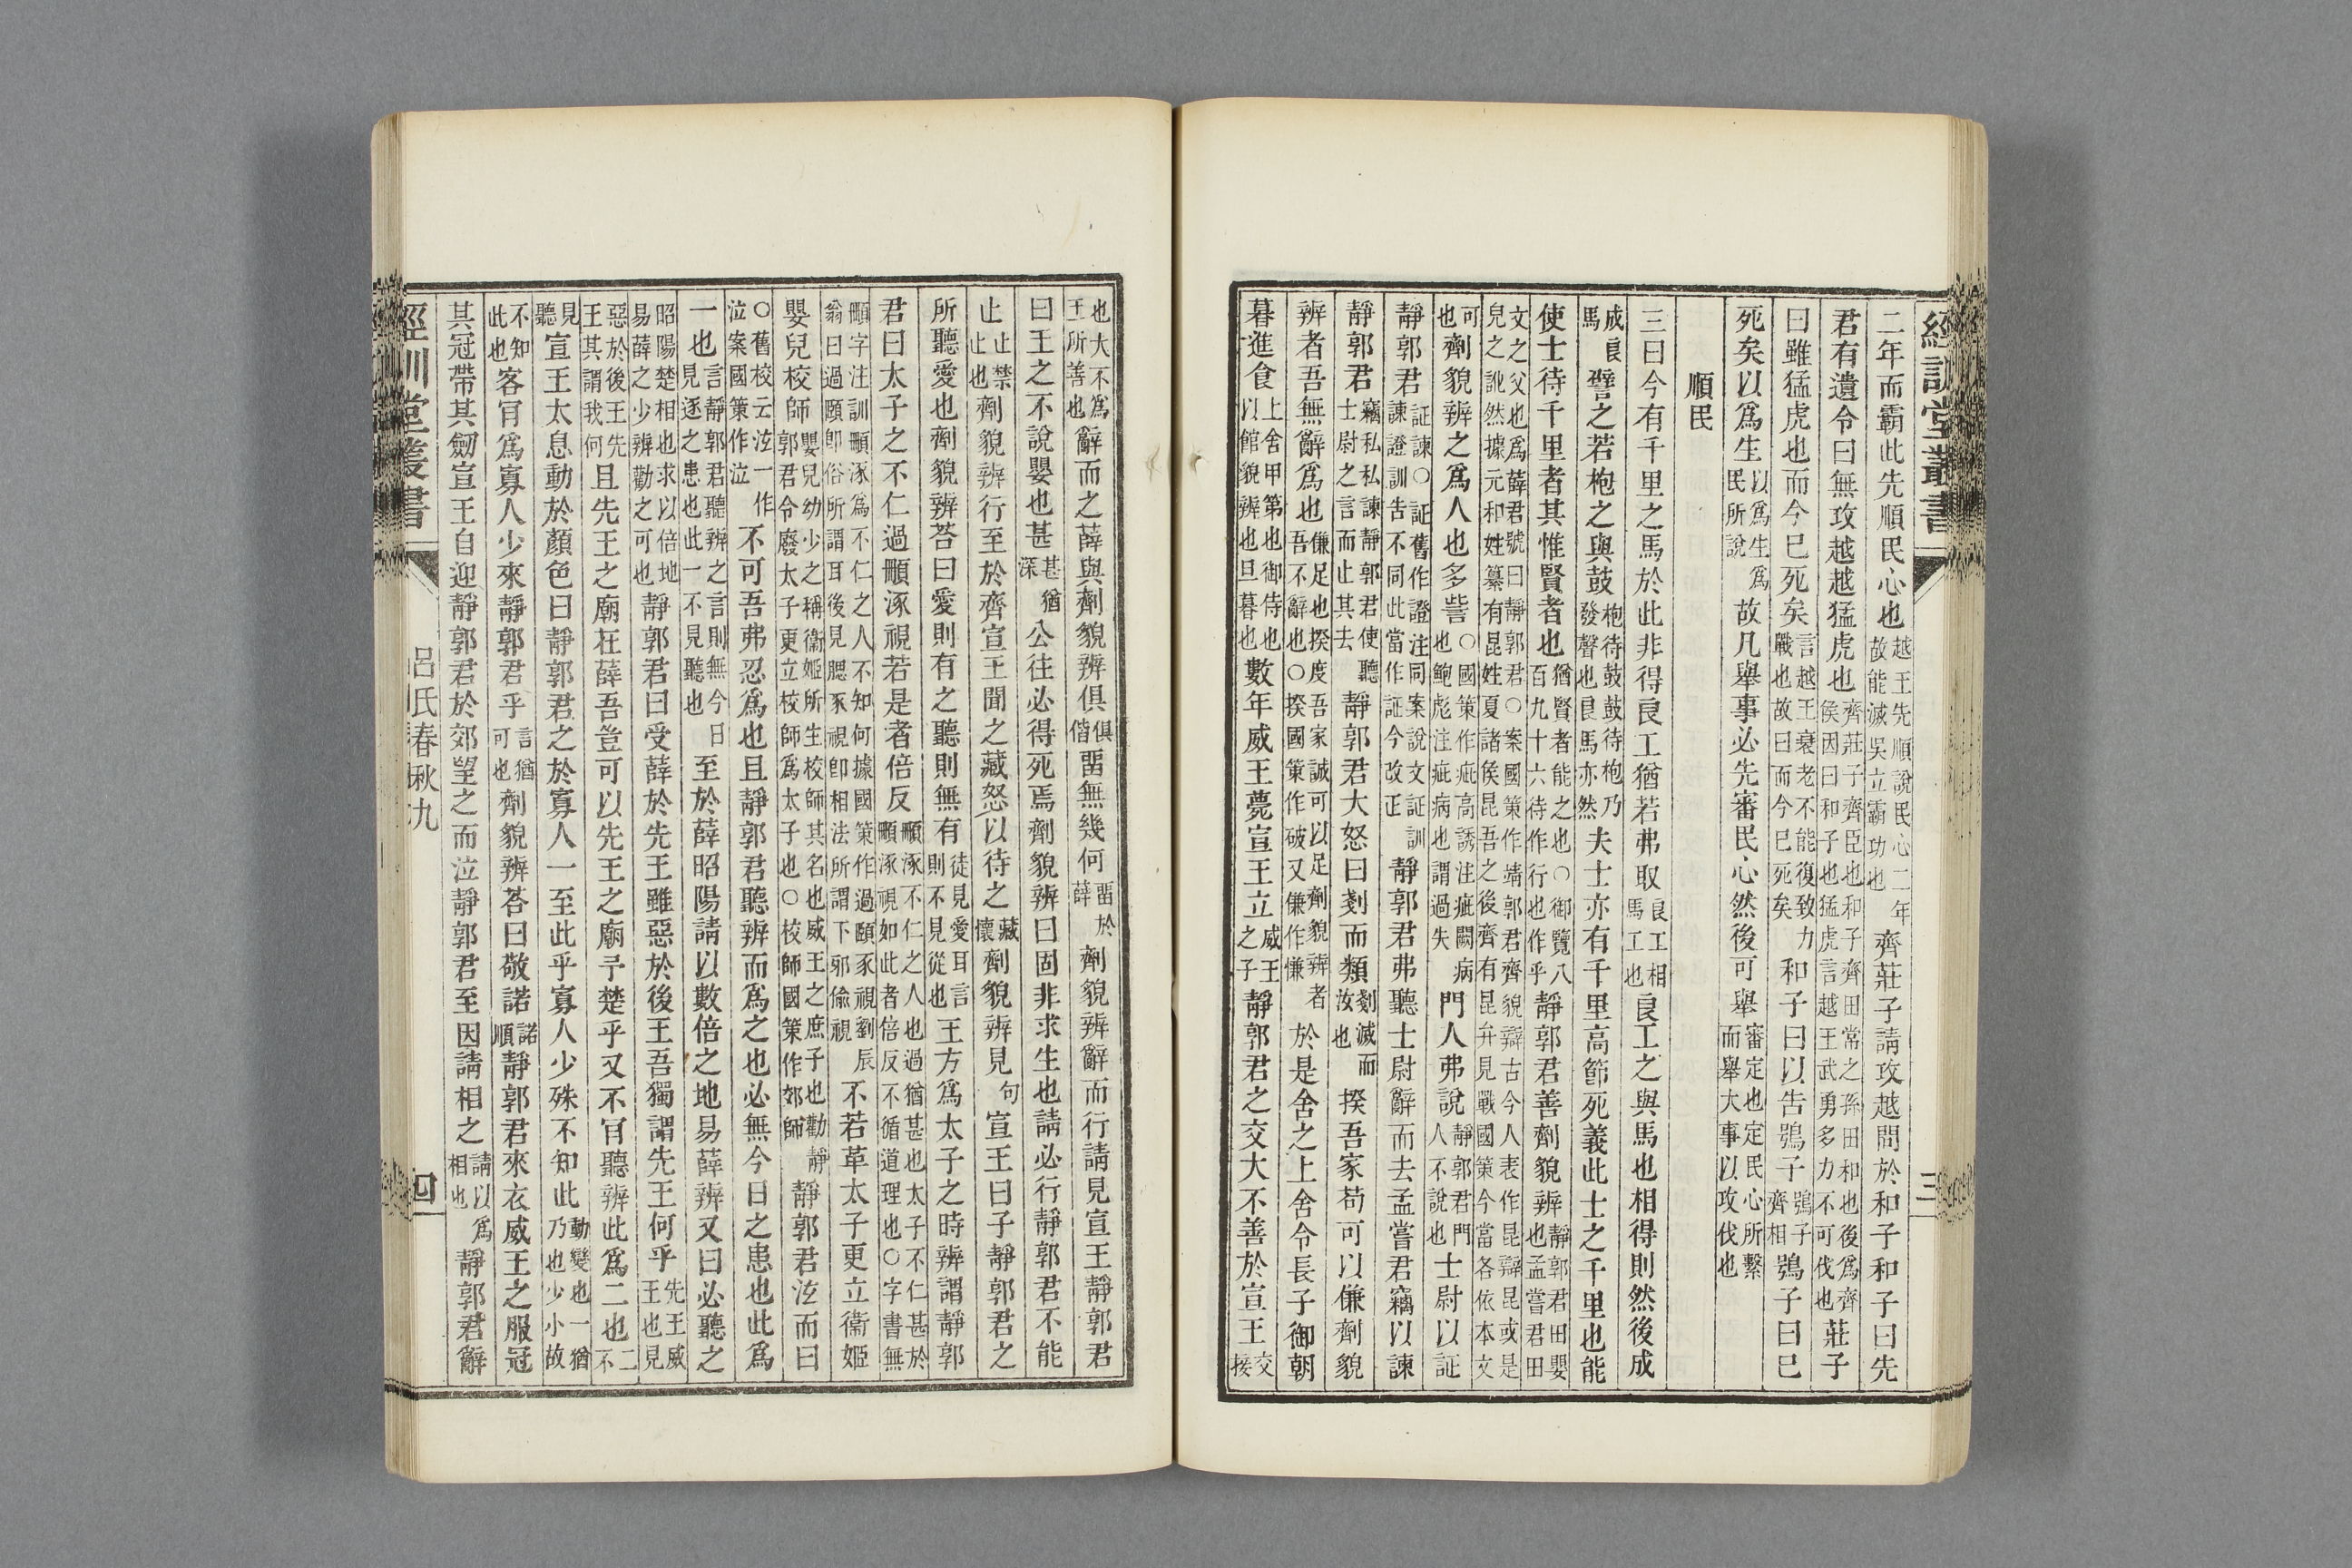 經訓堂叢書
三
二年而霸此先順民心也越王先順說民心二年故能滅吳立霸功也齊莊子請攻越問於和子和子曰先
君有遺令曰無攻越越猛虎也齊莊子齊臣也和子齊田常之孫田和也後爲齊侯因曰和子也猛虎言越王武勇多力不可伐也莊子
曰雖猛虎也而今已死矣言越王衰老不能復致力戰也故曰而今已死矣和子曰以告鴞子鴞子齊相鴞子曰已
死矣以爲生以爲生爲民所說故凡舉事必先審民心然後可舉審定也定民心所繫而舉大事以攻伐也
順民
三曰今有千里之馬於此非得良工猶若弗取良工相馬工也良工之與馬也相得則然後成
成良馬譬之若枹之與鼓枹待鼓鼓待枹乃發聲也良馬亦然夫士亦有千里高節死義此士之千里也能
使士待千里者其惟賢者也猶賢者能之也○御覽八百九十六待作行也作乎靜郭君善劑貌辨靜郭君田嬰也孟嘗君田
文之父也爲薛君號曰靜郭君○案國策作靖郭君齊貌辯古今人表作昆辯昆或是兒之訛然據元和姓纂有昆姓夏諸侯昆吾之後齊有昆弁見戰國策今當各依本文
可也劑貌辨之爲人也多訾○國策作疵高誘注疵闕病也鮑彪注疵病也謂過失門人弗說靜郭君門人不說也士尉以証
靜郭君証諫○証舊作證注同案說文証訓諫證訓告不同此當作証今改正靜郭君弗聽士尉辭而去孟嘗君竊以諫
靜郭君竊私私諫靜郭君使聽士尉之言而止其去靜郭君大怒曰剗而類剗滅而汝也揆吾家苟可以傔劑貌
辨者吾無辭爲也傔足也揆度吾家誠可以足劑貌辨者吾不辭也○揆國策作破又傔作慊於是舍之上舍令長子御朝
暮進食上舍甲第也御侍也以館貌辨也旦暮也數年威王薨宣王立威王之子靜郭君之交大不善於宣王交接
也大不爲王所善也辭而之薛與劑貌辨俱俱偕畱無幾何畱於薛劑貌辨辭而行請見宣王靜郭君
曰王之不說嬰也甚甚猶深公往必得死焉劑貌辨曰固非求生也請必行靜郭君不能
止止禁止也劑貌辨行至於齊宣王聞之藏怒以待之藏懷劑貌辨見句宣王曰子靜郭君之
所聽愛也劑貌辨荅曰愛則有之聽則無有徒見愛耳言則不見從也王方爲太子之時辨謂靜郭
君曰太子之不仁過𩒺涿視若是者倍反𩒺涿不仁之人也過猶甚也太子不仁甚於𩒺涿視如此者倍反不循道理也○字書無
𩒺字注訓𩒺涿爲不仁之人不知何據國策作過頤豕視劉辰翁曰過頤卽俗所謂耳後見腮豕視卽相法所謂下邪偷視不若革太子更立衞姬
嬰兒校師嬰兒幼少之稱衞姬所生校師其名也威王之庶子也勸靜郭君令廢太子更立校師爲太子也○校師國策作郊師靜郭君泫而曰
○舊校云泫一作泣案國策作泣不可吾弗忍爲也且靜郭君聽辨而爲之也必無今日之患也此爲
一也言靜郭君聽辨之言則無今日見逐之患也此一不見聽也至於薛昭陽請以數倍之地易薛辨又曰必聽之
昭陽楚相也求以倍地易薛之少辨勸之可也靜郭君曰受薛於先王雖惡於後王吾獨謂先王何乎先王威王也見
惡於後王先王其謂我何且先王之廟在薛吾豈可以先王之廟予楚乎又不肎聽辨此爲二也二不
見聽宣王太息動於顏色曰靜郭君之於寡人一至此乎寡人少殊不知此動變也一猶乃也少小故
不知此也客肎爲寡人少來靜郭君乎言猶可也劑貌辨荅曰敬諾諾順靜郭君來衣威王之服冠
其冠帶其劒宣王自迎靜郭君於郊望之而泣靜郭君至因請相之請以爲相也靜郭君辭
經訓堂叢書
呂氏春秋九
四